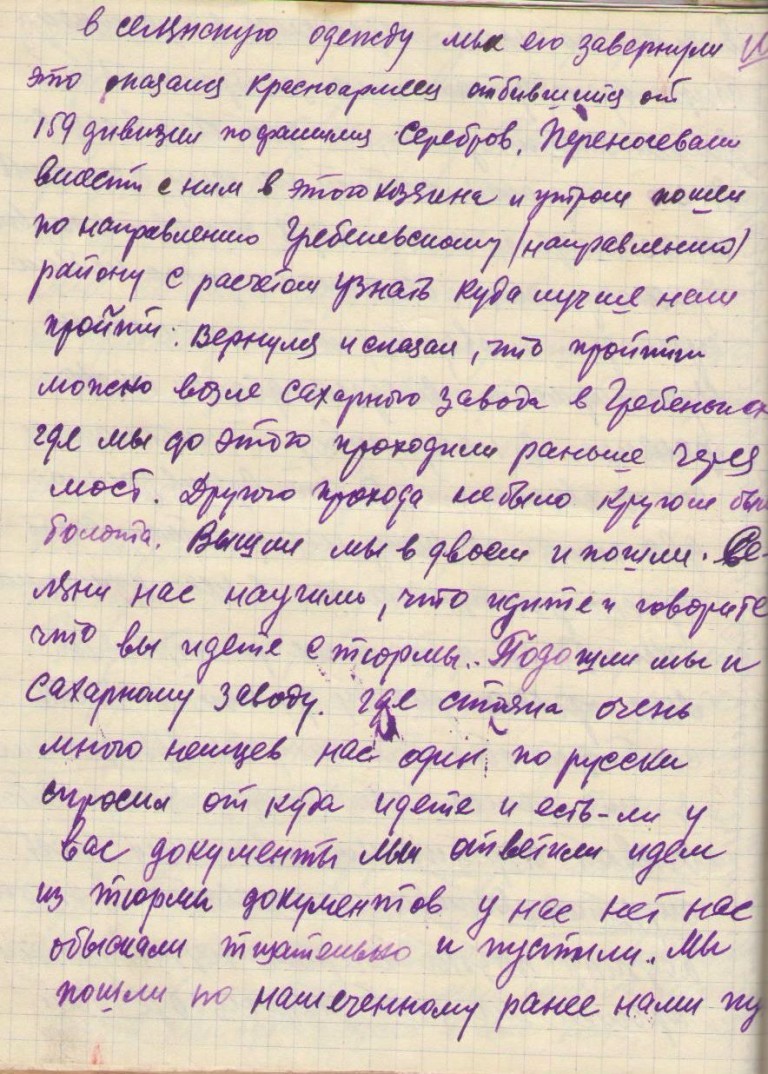 в селянскую одежду мы его завернули
это оказался красноармеец отбившийся от
159 дивизии по фамилии Серебров. Переночевали
вместе с ним в этого хозяина и утром пошли
по направлению Гребеневскому (направлению)
району с расчетом узнать куда лучше нам
пройти. Вернулся и сказал, что пройти
можно возле сахарного завода в Гребеньках
где мы до этого проходили раньше через
мост. Другого прохода небыло кругом был
болота. Вышли мы в двоем и пошли. Се-
ляни нас научили, что идите и говорите
что вы идете с тюрмы. Подошли мы к
сахарному заводу. где стояла очень
много немцев нас один по русски
спросил от куда идете и есть-ли у
вас документы мы ответили идем
из тюрмы документов у нас нет нас
обыскали тщательно и пустили. Мы
пошли по намеченному ранее нами пу